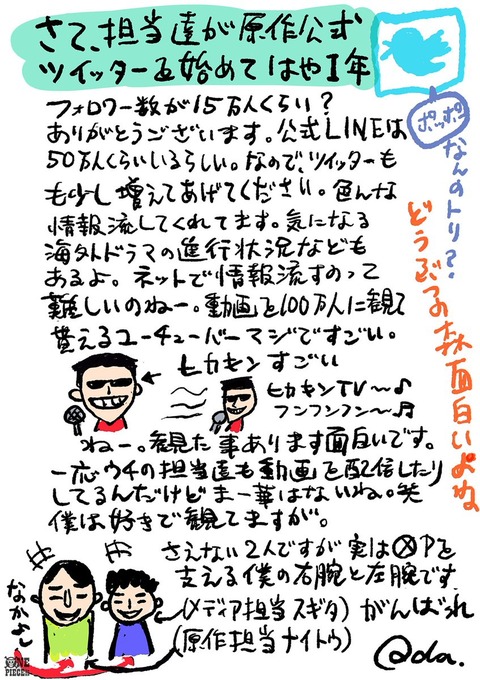 さて、担当達が原作公式
ツイッターを始めてはや1年
フォロワー数が15万人くらい?
ありがとうございます。公式LINEは
50万人くらいいるらしい。なので、ツイッターも
も少し増えてあげてください。色んな
情報流してくれてます。気になる
海外ドラマの進行状況なども
あるよ。ネットで情報流すのって
難しいのねー。動画を100万人に観て
貰えるユーチューバーマジですごい。
←ヒカキンすごい
ヒカキンTV〜♪
フンフンフン〜♬
ねー。観た事あります面白いです。
一応ウチの担当達も動画を配信したり
してるんだけどま一華はないね。笑
僕は好きで観てますが。
さえない2人ですが実は
Pを
支える僕の右腕と左腕です。
(メディア担当スギタ)がんばれ
(原作担当ナイトウ)
なかよし
Oda.
ポッポ
なんのトリ?
どうぶつの森面白いよね
ONE
PIECE